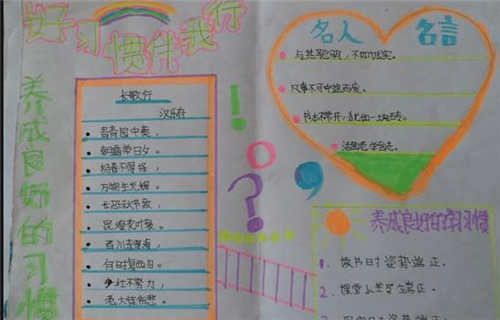 好习惯伴我行
养成良好的习惯
长歌行
汉乐府
青青园中葵，
朝露带日夕。
杨春不得择，
万物生光辉。
长恐秋节致，
花叶衰。
百川东到海，
何时复西归。
少壮不努力，
老大徒伤悲。
名人 名言
与其聪明，不如诚实。
凡事不可中途而废。
书本不常开，犹如一块砖。
活到老，学到老。
养成良好的学习习惯
1、读书时姿势端正。
2、课堂上坐姿端正。